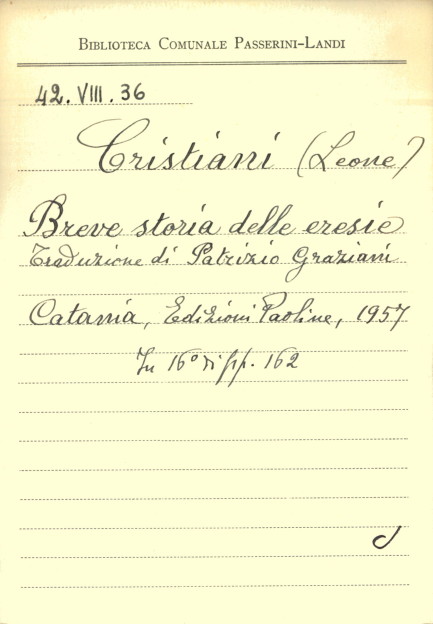 BIBLIOTECA COMUNALE PASSERINI-LANDI
42.VIII.36
Cristiani (Leone)
Breve storia delle eresie
Traduzione di Patrizio Graziani
Catania, Edizioni Paoline, 1957
In 16° di pp. 162